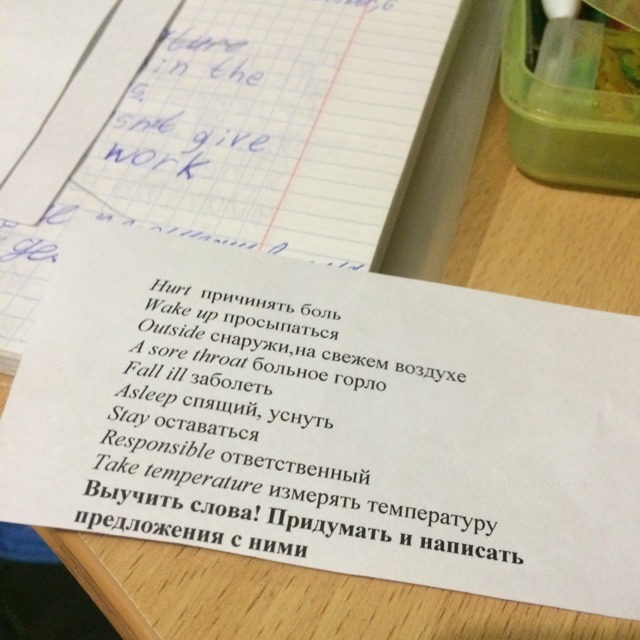 in the
give
work
Hurt причинять боль
Wake up просыпаться
Outside снаружи,на свежем воздухе
A sore throat больное горло
Fall ill заболеть
Asleep спящий, уснуть
Stay оставаться
Responsible ответственный
Take temperature измерять температуру
Выучить слова! Придумать и написать
предложения с ними